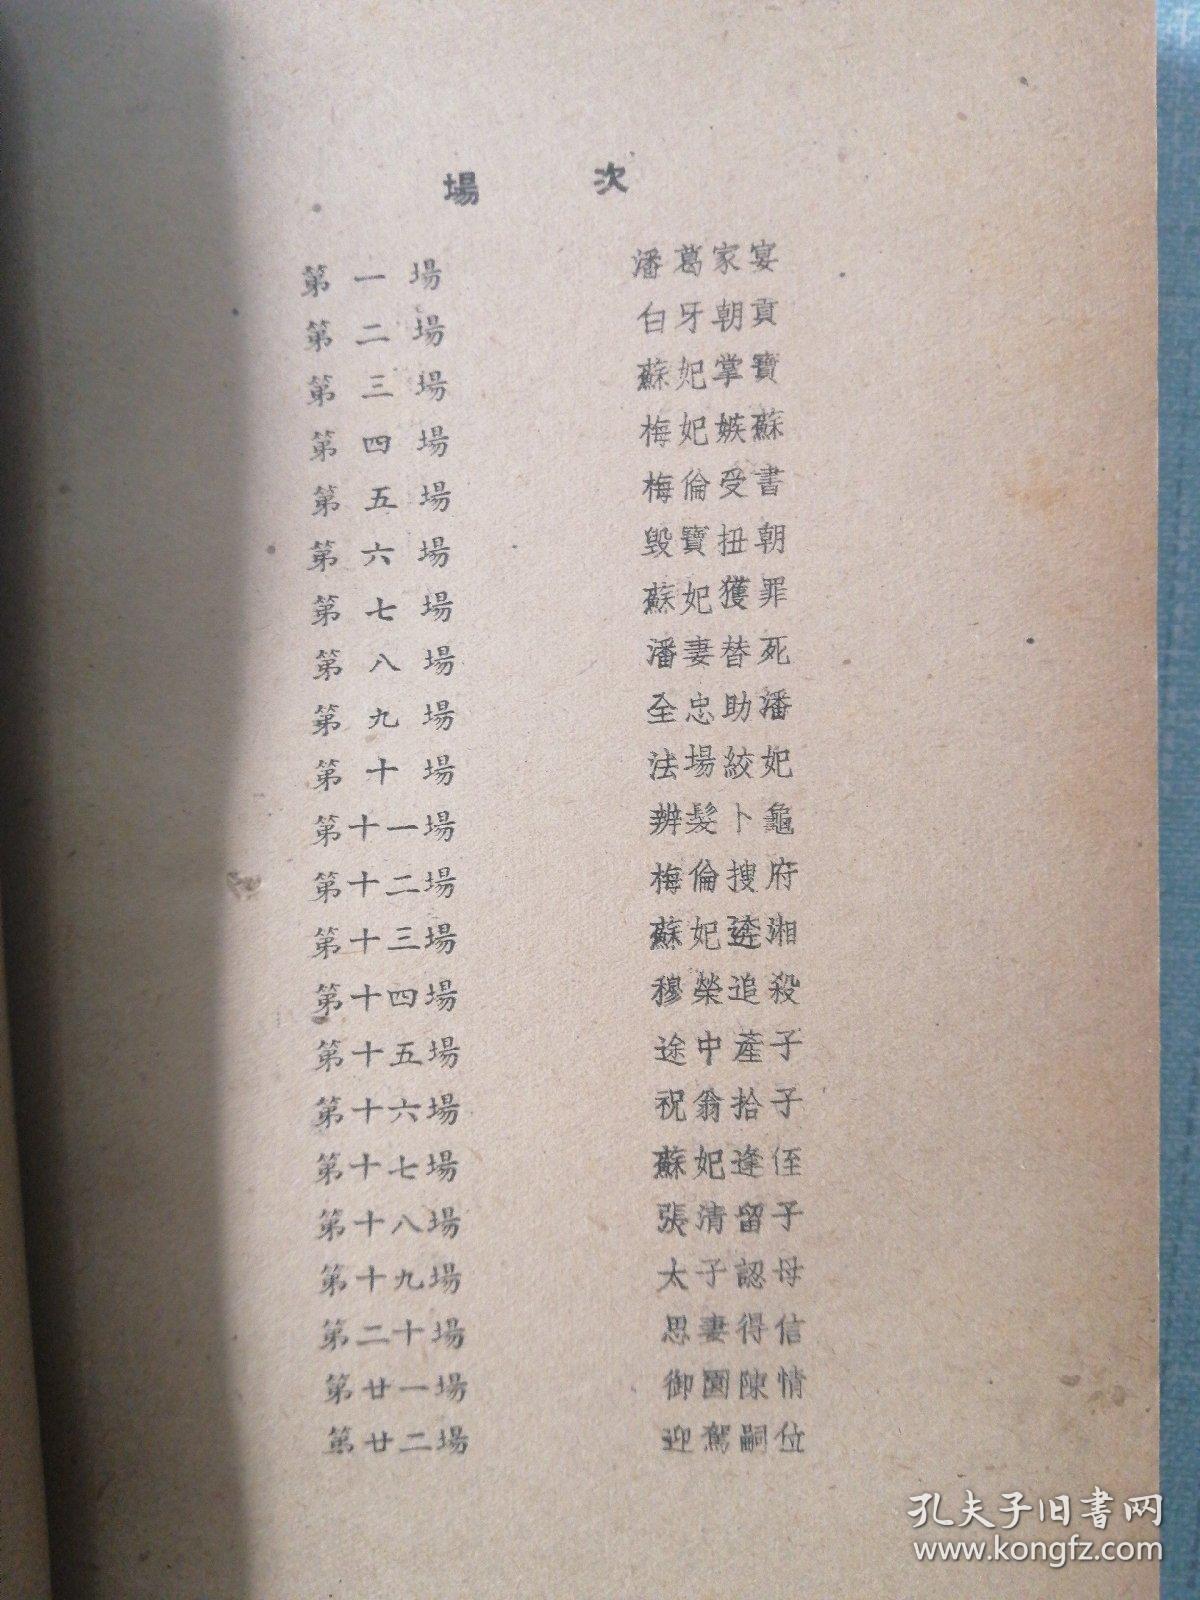 場 次
第一場 潘葛家宴
第二場 白牙朝貢
第三場 蘇妃掌寶
第四場 梅妃嫉蘇
第五場 梅倫受書
第六場 毀寶扭朝
第七場 蘇妃獲罪
第八場 潘妻替死
第九場 全忠助潘
第十場 法場絞妃
第十一場 辨髮卜龜
第十二場 梅倫搜府
第十三場 蘇妃逃湘
第十四場 穆榮追殺
第十五場 途中產子
第十六場 祝翁拾子
第十七場 蘇妃逢侄
第十八場 張清留子
第十九場 太子認母
第二十場 思妻得信
第廿一場 御園陳情
第廿二場 迎駕嗣位
孔夫子旧书网
www.kongfz.com